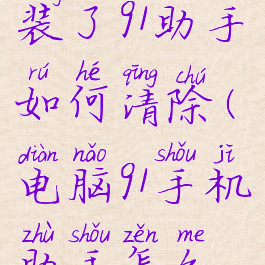 装了91助手
rú hé qīng chú
如何清除(
diàn nǎo shǒu jī
电脑91手机
zhù shǒu zěn me
助手怎么